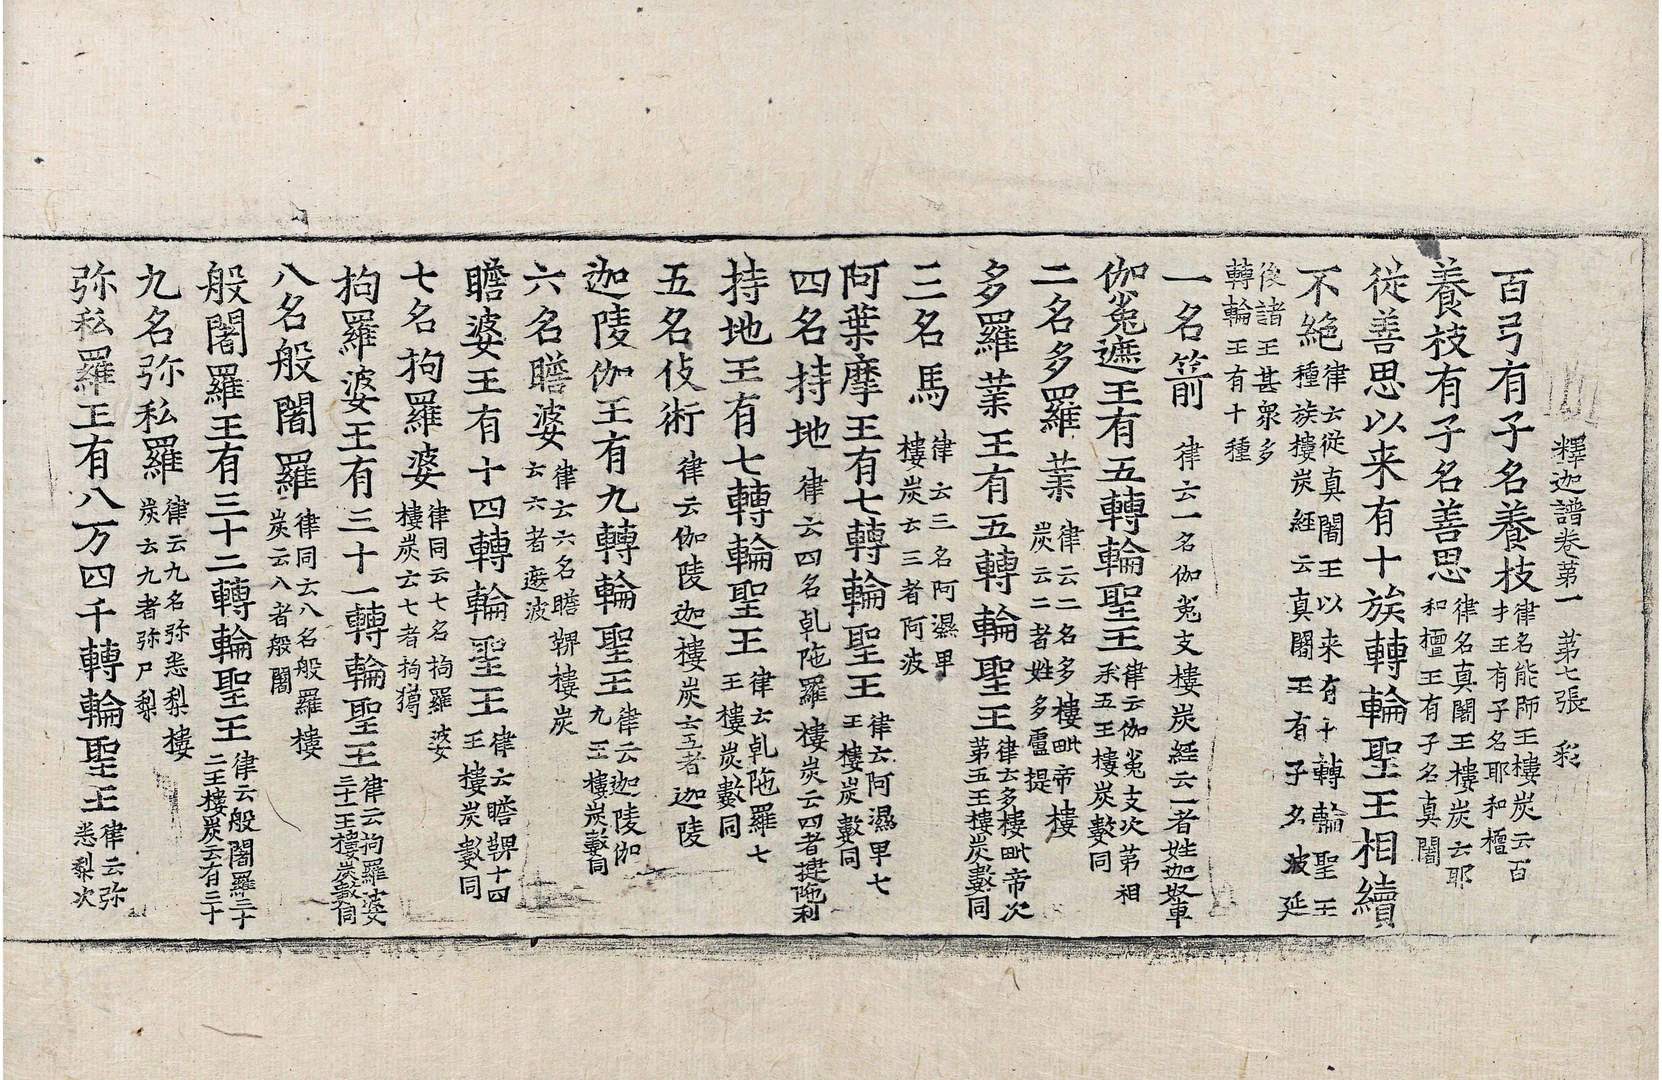 釋迦譜卷第一　第七張　彩
百弓有子名養枝律名能師王樓炭云百才王有子名耶和檀
養枝有子名善思律名真闍王樓炭云耶和檀王有子名真闍
從善思以来有十族轉輪聖王相續
不絕律云從真闍王以来有十轉輪聖王種族樓炭經云真闍王有子名波延
後諸王甚衆多轉輪王有十種
一名箭律云一名伽㝹支樓炭經云一者姓迦奴車
伽㝹遮王有五轉輪聖王律云伽㝹支次第相承五王樓炭數同
二名多羅業律云二名多樓毗帝樓炭云二者姓多盧提
多羅業王有五轉輪聖王律云多樓毗帝次第五王樓炭數同
三名馬律云三名阿濕畢樓炭云三者阿波
阿葉摩王有七轉輪聖王律云阿濕畢七王樓炭數同
四名持地律云四名乹陁羅樓炭云四者揵陁利
持地王有七轉輪聖王律云乹陁羅七王樓炭數同
五名伎術律云伽陵迦樓炭云五者迦陵
迦陵伽王有九轉輪聖王律云迦陵伽九王樓炭數同
六名瞻婆律云六名瞻鞞樓炭云六者遮波
瞻婆王有十四轉輪聖王律云瞻鞞十四王樓炭數同
七名拘羅婆律同云七名拘羅婆樓炭云七者拘獦
拘羅婆王有三十一轉輪聖王律云拘羅婆三十一王樓炭數同
八名般闍羅律同云八名般羅樓炭云八者般闍
般闍羅王有三十二轉輪聖王律云般闍羅三十二王樓炭云有三十
九名弥私羅律云九名弥悉梨樓炭云九者弥尸梨
弥私羅王有八万四千轉輪聖王律云弥悉梨次